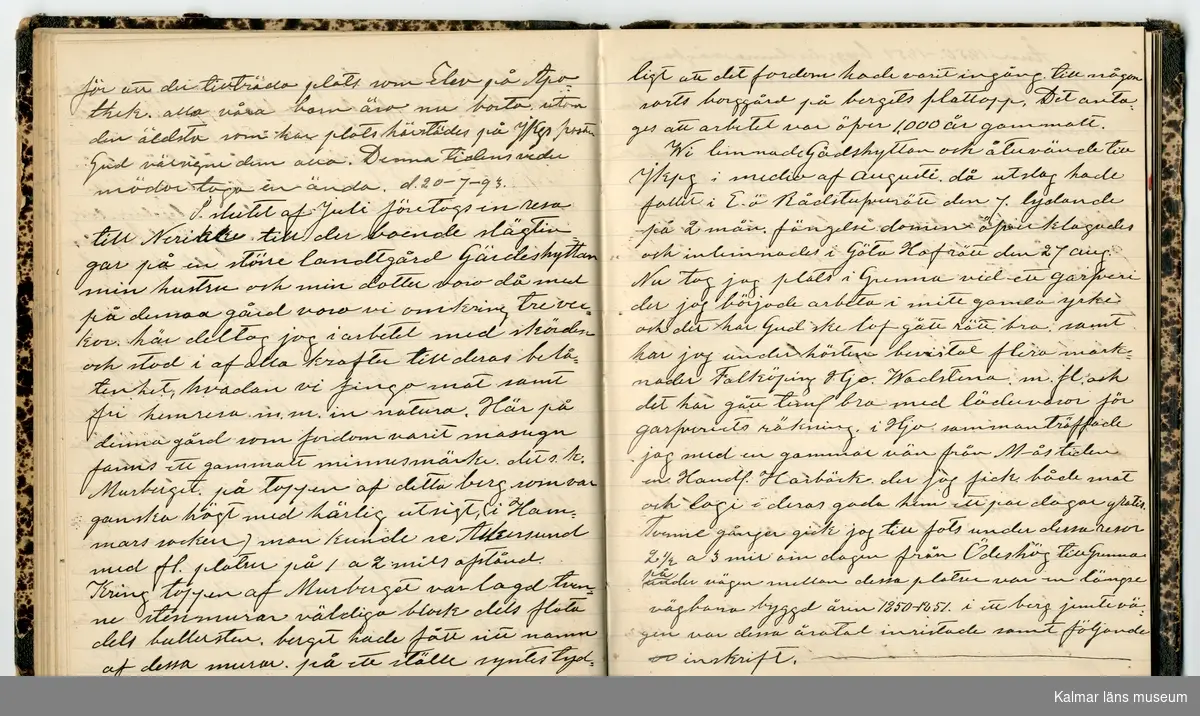 för att der tillträda plats som Elev på Apo
thek. alla våra barn äro nu borta utom
den äldsta som har plats härstädes på Jkgs Posten
Gud välsigne dem alla. Denna tidens vedur
mödor togo en ända. d. 20-7-93.
I slutet af Juli företogs en resa
till Nerikke till der boende slägtin
gar på en större landtgård Gärdeshyttan
min hustru och min dotter voro då med
på denna gård voro vi omkring tre vec
kor. här deltog jag i arbetet med skörden
och stod i af alla krafter till deras belå-
tenhet, hvadan vi fingo mat samt
fri hemresa m.m. in natura. Här på
denna gård som fordom varit masugn
fanns ett gammalt minnesmärke. det s.k.
Murberget. på toppen af detta berg som var
ganska högt med härlig utsigt, (i Ham-
mars socken) man kunde se Askersund
med fl. platser på 1 a 2 mils afstånd.
Kring toppen af Murberget var lagd tven-
ne stenmurar väldiga block dels flata
dels kullersten. berget hade fått sitt namn
af dessa murar. på ett ställe syntes tyd-
ligt att det fordom hade varit ingång till någon
sorts borggård på bergets plattopp. Det anta-
ges att arbetet var öfver 1,000 år gammalt.
Wi lemnade Gärdshyttan och återvände till
Jkpg i medio af Augusti. då utslag hade
fallit i E.ö Rådstufvurätt den 7. lydande
på 2 mån. fängelse domen öfverklagades
och inlemnades i Göta Hofrätt den 27 aug.
Nu tog jag plats i Grenna vid ett garfveri
der jag började arbeta i mitt gamla yrke
och der har Gud ske lof gått rätt bra. samt
har jag under hösten bevistat flera mark-
nader Falköping Hjo. Wadstena m. fl. och
det har gått bra med lädervaror för
garfveriets räkning. i Hjo sammanträffade
jag med en gammal vän från M-ås tiden
en Handl. Harbäck der jag fick både mat
och logi i deras goda hem ett par dagar gratis.
Tvenne gånger gick jag till fots under dessa resor
2 1/2 a 3 mil om dagen från Ödeshög till Grenna
på
under vägen mellan dessa platser var en längre
vägbana byggd åren 1850-1851. i ett berg jemte vä-
gen var dessa åratal inristade samt följande
inskrift.
Kalmar läns museum